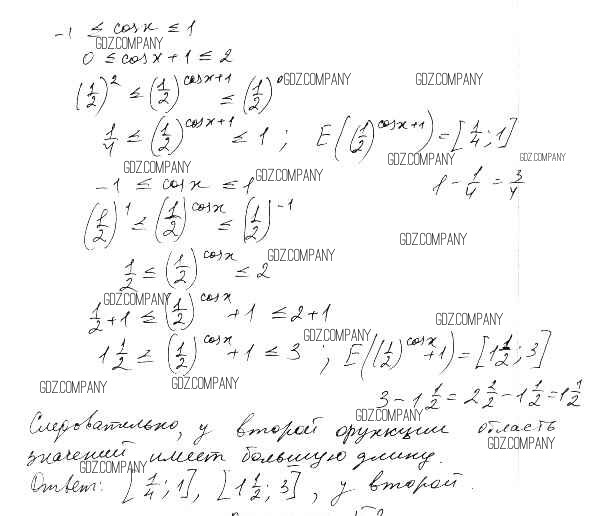 -1 ≤ cosx ≤ 1
GDZ.COMPANY
0 ≤ cosx+1 ≤ 2
(1/2)^2 ≤ (1/2)^(cosx+1) ≤ (1/2)^0 GDZ.COMPANY GDZ.COMPANY
1/4 ≤ (1/2)^(cosx+1) ≤ 1 ; E((1/2)^(cosx+1)) = [1/4; 1]
GDZ.COMPANY GDZ.COMPANY GDZ.COMPANY
-1 ≤ cosx ≤ 1 GDZ.COMPANY 1 - 1/4 = 3/4
(1/2)^1 ≤ (1/2)^cosx ≤ (1/2)^-1
GDZ.COMPANY
1/2 ≤ (1/2)^cosx ≤ 2 GDZ.COMPANY
GDZ.COMPANY
1/2+1 ≤ (1/2)^cosx +1 ≤ 2+1
GDZ.COMPANY GDZ.COMPANY
1 1/2 ≤ (1/2)^cosx +1 ≤ 3 ; E((1/2)^cosx +1) = [1 1/2; 3]
GDZ.COMPANY GDZ.COMPANY
3 - 1 1/2 = 2 2/2 - 1 1/2 = 1 1/2
GDZ.COMPANY
Следовательно, у второй функции область
GDZ.COMPANY
значений имеет большую длину.
GDZ.COMPANY
Ответ: [1/4; 1], [1 1/2; 3], у второй.